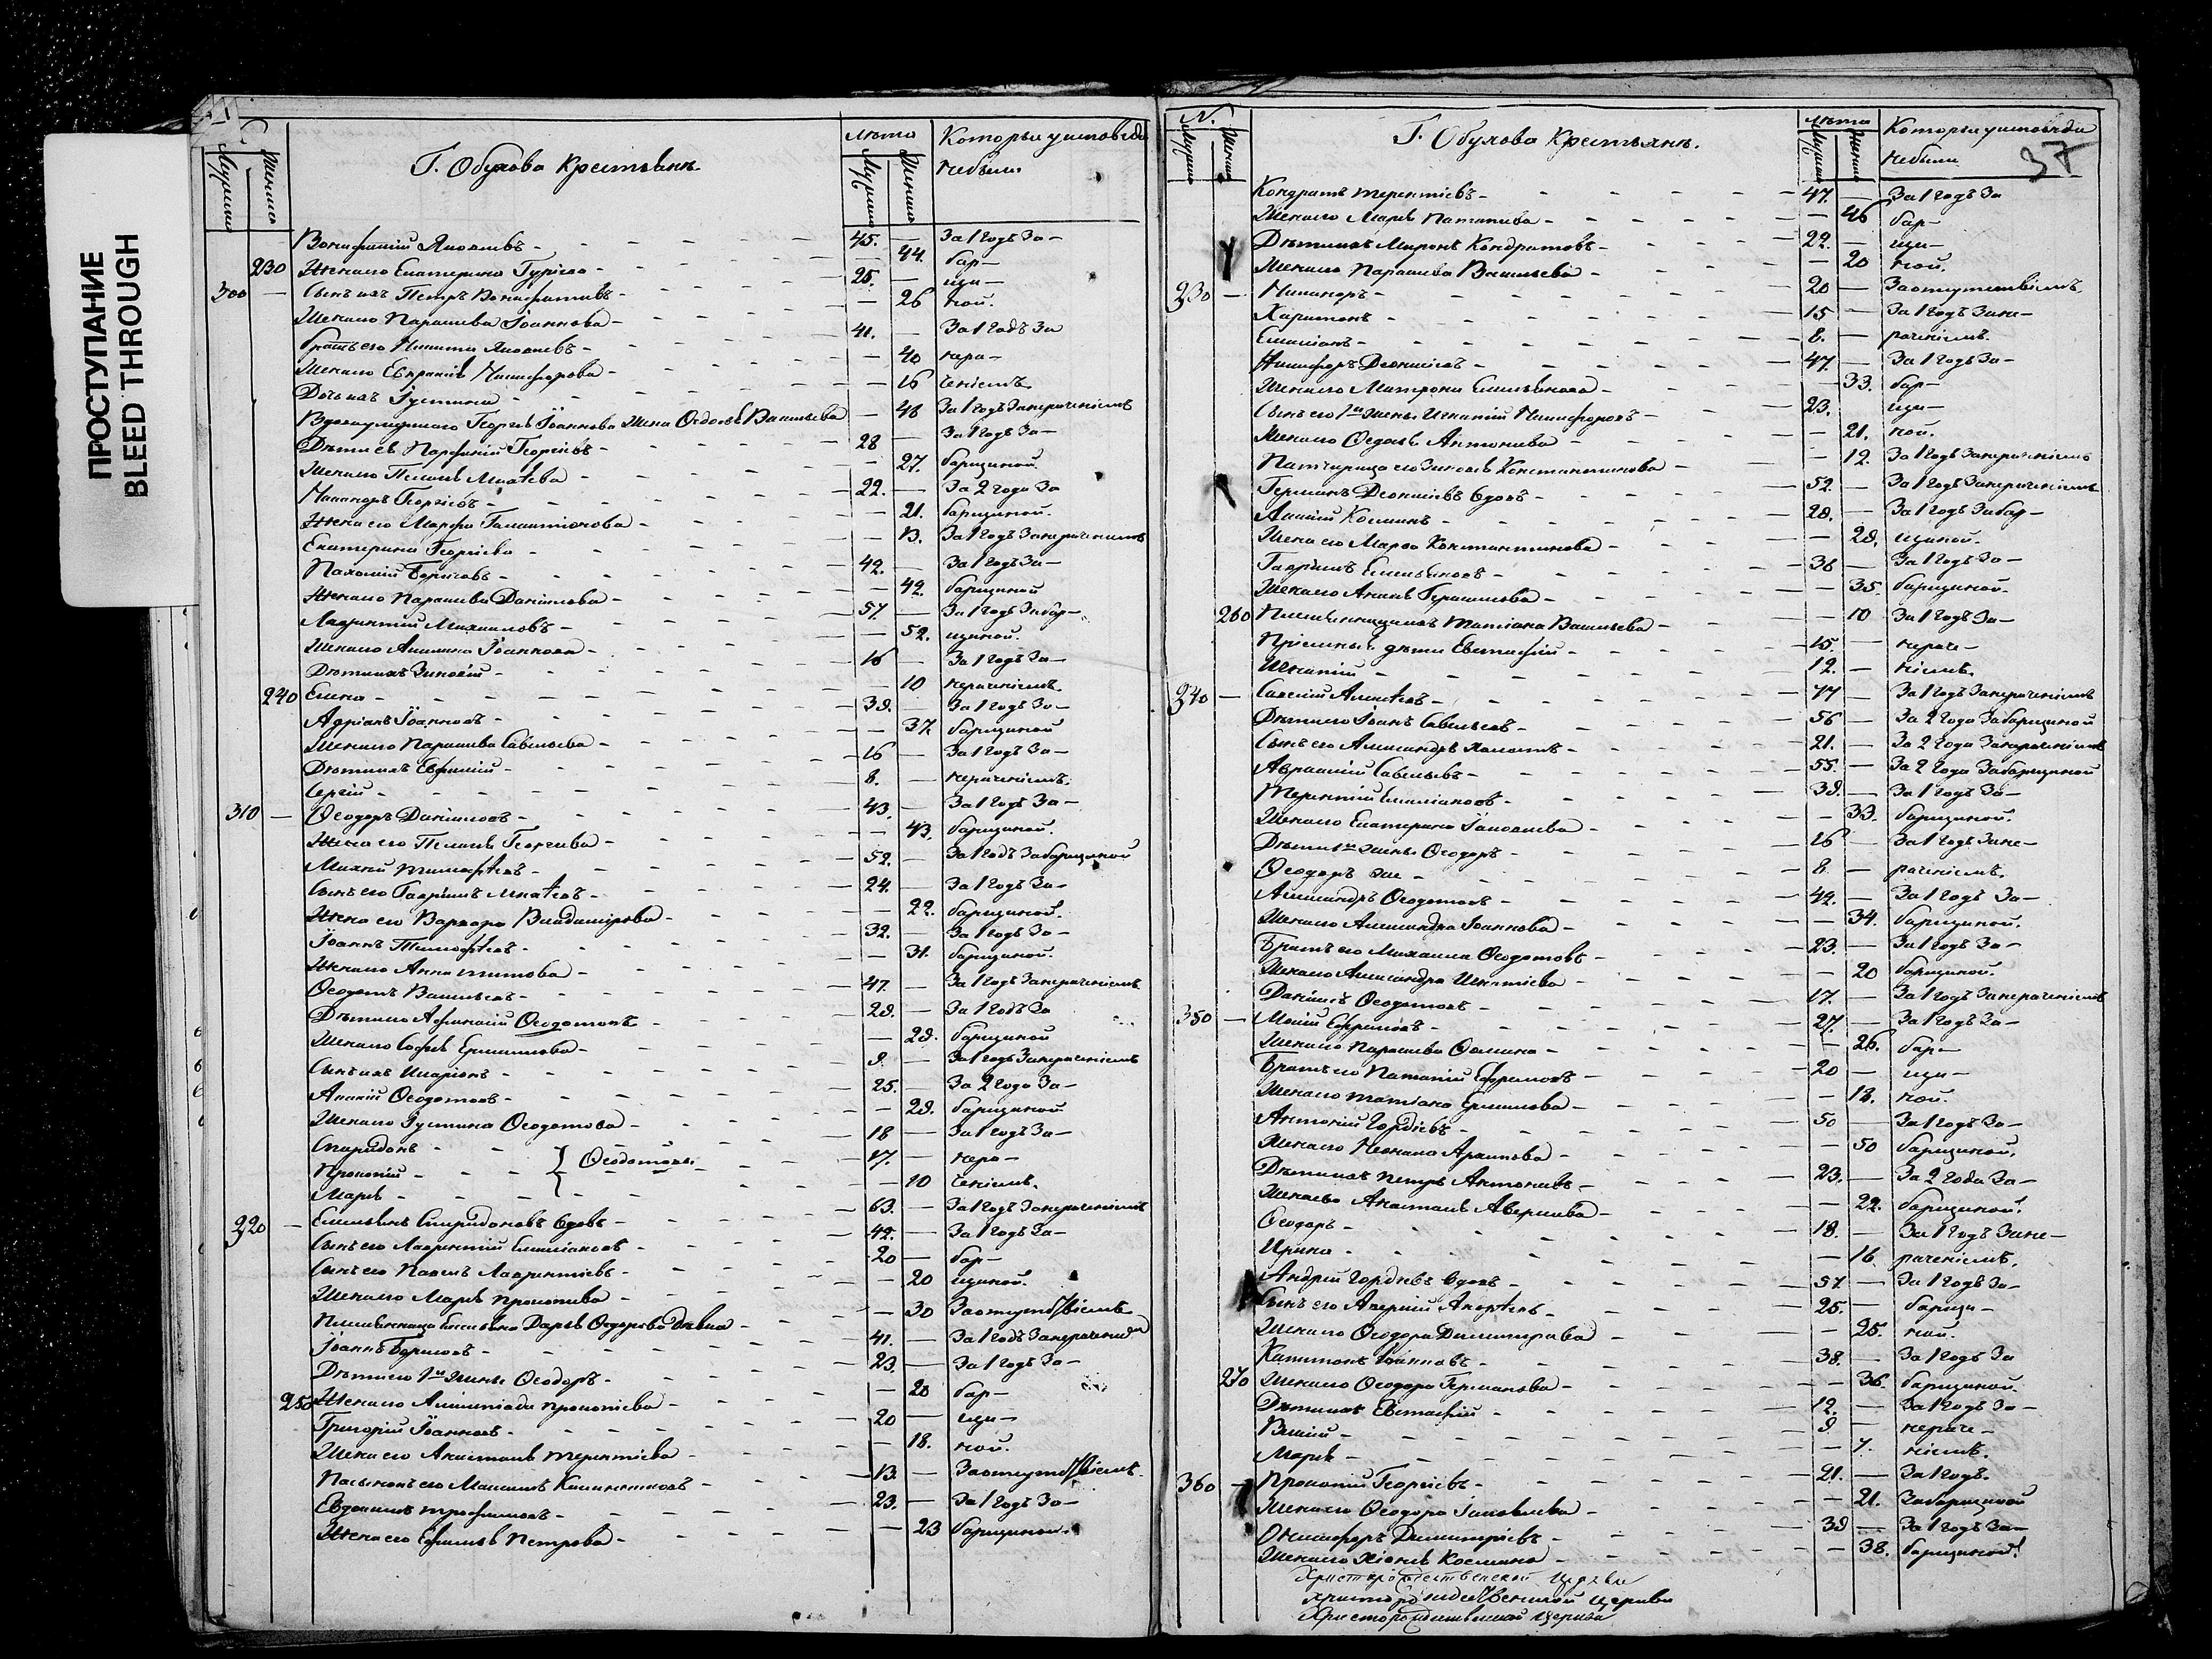 ПРОСТУПАНИЕ
BLEED THROUGH
Мущины Женщины
Г. Обухова Крестьяне.
лѣта
Которыя у исповѣди
небыли
Вонифатий Яковлевъ - 45. — За 1 годъ За-
230 Жена его Екатерина - 44. бар-
300 — Сынъ ихъ Петръ Вонифатиевъ - 25. — щи-
Жена его Парасковья Іоаннова - — 26 ной.
Братъ его Никита Яковлевъ - 41. — За 1 годъ За
Жена его Евпраксія Никифорова - — 40 нера-
Дочь ихъ Іустина - — 16 ченіемъ
Георгія Іоаннова жена Ѳедосья Васильева — 48 За 1 годъ Занераченіемъ
Дѣти ея Парфеній Георгіевъ - 28 — За 1 годъ За-
Жена его Пелагія - — 27. барщиной.
Никаноръ Георгіевъ - 22. — За 2 года За
Жена его Марѳа Галактіонова - — 21. барщиной.
Екатерина Георгіева - — 13. За 1 годъ Занераченіемъ
Пахомій Борисовъ - 42. — За 1 годъ За-
Жена его Парасковья Данилова - — 42. барщиной
Лаврентій Михаиловъ - 57. — За 1 годъ Забар-
Жена его Акилина Іоаннова - — 52. щиной.
Дѣти ихъ Зиновій - 16 — За 1 годъ За-
240 Елена - — 10 нераченіемъ.
Адріанъ Іоанновъ - 39. — За 1 годъ За-
Жена его Парасковья Савельева - — 37. барщиной
Дѣти ихъ Евфимій - 16 — За 1 годъ За-
Сергій - 8. — нераченіемъ.
310 — Ѳеодоръ Даниловъ - 43. — За 1 годъ За-
Жена его Пелагія Георгіева - — 43. барщиной.
Михей Тимофѣевъ - 52. — За 1 годъ Забарщиной
Сынъ его Гавріилъ - 24. — За 1 годъ За-
Жена его Варвара Владимірова - — 22. барщиной.
Іоаннъ Тимофѣевъ - 32. — За 1 годъ За-
Жена его Анна Титова - — 31. барщиной.
Ѳеодотъ Васильевъ - 47. — За 1 годъ Занераченіемъ
Дѣти его Аѳанасій Ѳеодотовъ - 29. — За 1 годъ За
Жена его Софья Ермилова - — 29. барщиной
Сынъ ихъ Иларіонъ - 9. — За 1 годъ Занераченіемъ
Ѳеодотовъ - 25. — За 2 года За-
Жена его Іустина Ѳеодотова - — 29. барщиной
Спиридонъ - 18 — За 1 годъ За-
Прокопій - } Ѳеодотовы 17. — нера-
Марія - — 10 ченіемъ.
320 — Емельянъ Спиридоновъ вдовъ - 63. — За 1 годъ Занераченіемъ
Сынъ его Лаврентій Емиліановъ - 42. — За 1 годъ За-
Сынъ его Павелъ Лаврентіевъ - 20 — бар-
Жена его Марія Прокопіева - — 20 щиной.
Дарья Ѳедорова дѣвка - — 30 Заотсутствіемъ
Іоаннъ Борисовъ - 41. — За 1 годъ Занераченіемъ
Дѣти его 1й жены Ѳеодоръ - 23. — За 1 годъ За-
250 Жена его Прокопіева - — 20 бар-
Григорій Іоанновъ - 20 — щи-
Жена его Анастасія Терентіева - — 18. ной.
Пасынокъ его - 13. — Заотсутствіемъ.
Евдокимъ Трофимовъ - 23. — За 1 годъ За-
Жена его Ефимія Петрова - — 23 барщиной.
N.
Мущины Женщины
Г. Обухова Крестьяне.
лѣта
Которыя у исповѣди
небыли
37
Кондратъ Терентіевъ - 47. — За 1 годъ За
Жена его Марія - — 46 бар-
Дѣти ихъ Миронъ Кондратовъ - 22. — щи-
Жена его Парасковья Васильева - — 20 ной.
330 — Никаноръ - 20 — Заотсутствіемъ.
Харитонъ - 15 — За 1 годъ Зане-
Емиліанъ - 8. — раченіемъ.
Никифоръ Деонисіевъ - 47. — За 1 годъ За-
Жена его Матрона Емельянова - — 33. бар-
Сынъ его 1й жены Игнатій Никифоровъ - 23. щи-
Жена его Ѳедосья Антонова - — 21. ной.
Падчерица его Зиновья Константинова - — 12. За 1 годъ Занераченіемъ
Германъ Деонисіевъ вдовъ - 52. — За 1 годъ Занераченіемъ
Косминъ - 28. — За 1 годъ Забар-
Жена его Марѳа Константинова - — 29. щиной.
Гавріилъ Емельяновъ - 36 — За 1 годъ За-
Жена его Герасимова - — 35. барщиной.
260 Племянница ихъ Татіана Васильева - — 10 За 1 годъ За-
Пріемные дѣти Евстафій - 15. — нераче-
Игнатій - 12. — ніемъ.
340 — Савелій - 77 — За 1 годъ Занераченіемъ
Дѣти его Іоаннъ Савельевъ - 56 — За 2 года Забарщиной
Сынъ его Александръ - 21. — За 2 года Занераченіемъ
Авраамій Савельевъ - 55. — За 2 года Забарщиной
Терентій Емиліановъ - 39. — За 1 годъ За-
Жена его Екатерина Іаковлева - — 33. барщиной.
Дѣти 1й жены Ѳеодоръ - 16 — За 1 годъ Зане-
Ѳеодоръ же - 8 — раченіемъ.
Александръ Ѳеодотовъ - 42. — За 1 годъ За-
Жена его Александра Іоаннова - — 34. барщиной.
Братъ его Михаила Ѳеодотовъ - 23. — За 1 годъ За-
Жена его Александра Игнатіева - — 20 барщиной.
Даніилъ Ѳеодотовъ - 17. — За 1 годъ Занераченіемъ
350 — Моисей Ефремовъ - 27. — За 1 годъ За-
Жена его Парасковья Ѳомина - — 26. бар-
Братъ его Ефремовъ - 20 — щи-
Жена его Татіана Ермилова - — 18. ной.
Антоній Гордѣевъ - 50 — За 1 годъ За-
Жена его Архипова - — 50 барщиной.
Дѣти ихъ Петръ Антоновъ - 23. — За 2 года За-
Жена его Анастасія Аверкіева - — 22. барщиной.
Ѳеодоръ - 18. — За 1 годъ Зане-
Ирина - — 16 раченіемъ.
Андрей Гордѣевъ вдовъ - 57. — За 1 годъ За-
Сынъ его Аверкій Андреевъ - 25. — барщи-
Жена его Ѳеодора Димитріева - — 25. ной.
Капитонъ Іоанновъ - 38. — За 1 годъ За
270 Жена его Ѳеодора Германова - — 36. барщиной.
Дѣти ихъ Евстафій - 12. — За 1 годъ За-
9 — нераче-
Марія - — 7. ніемъ.
360 — Прокопій Георгіевъ - 21. — За 1 годъ.
Жена его Ѳеодора Іаковлева - — 21. Забарщиной
Онисифоръ Димитріевъ - 39 — За 1 годъ За-
Жена его Хіонія Космина - — 38. барщиной.
Христорождественской Церкви
Христорождественской Церкви
Христорождественской Церкви